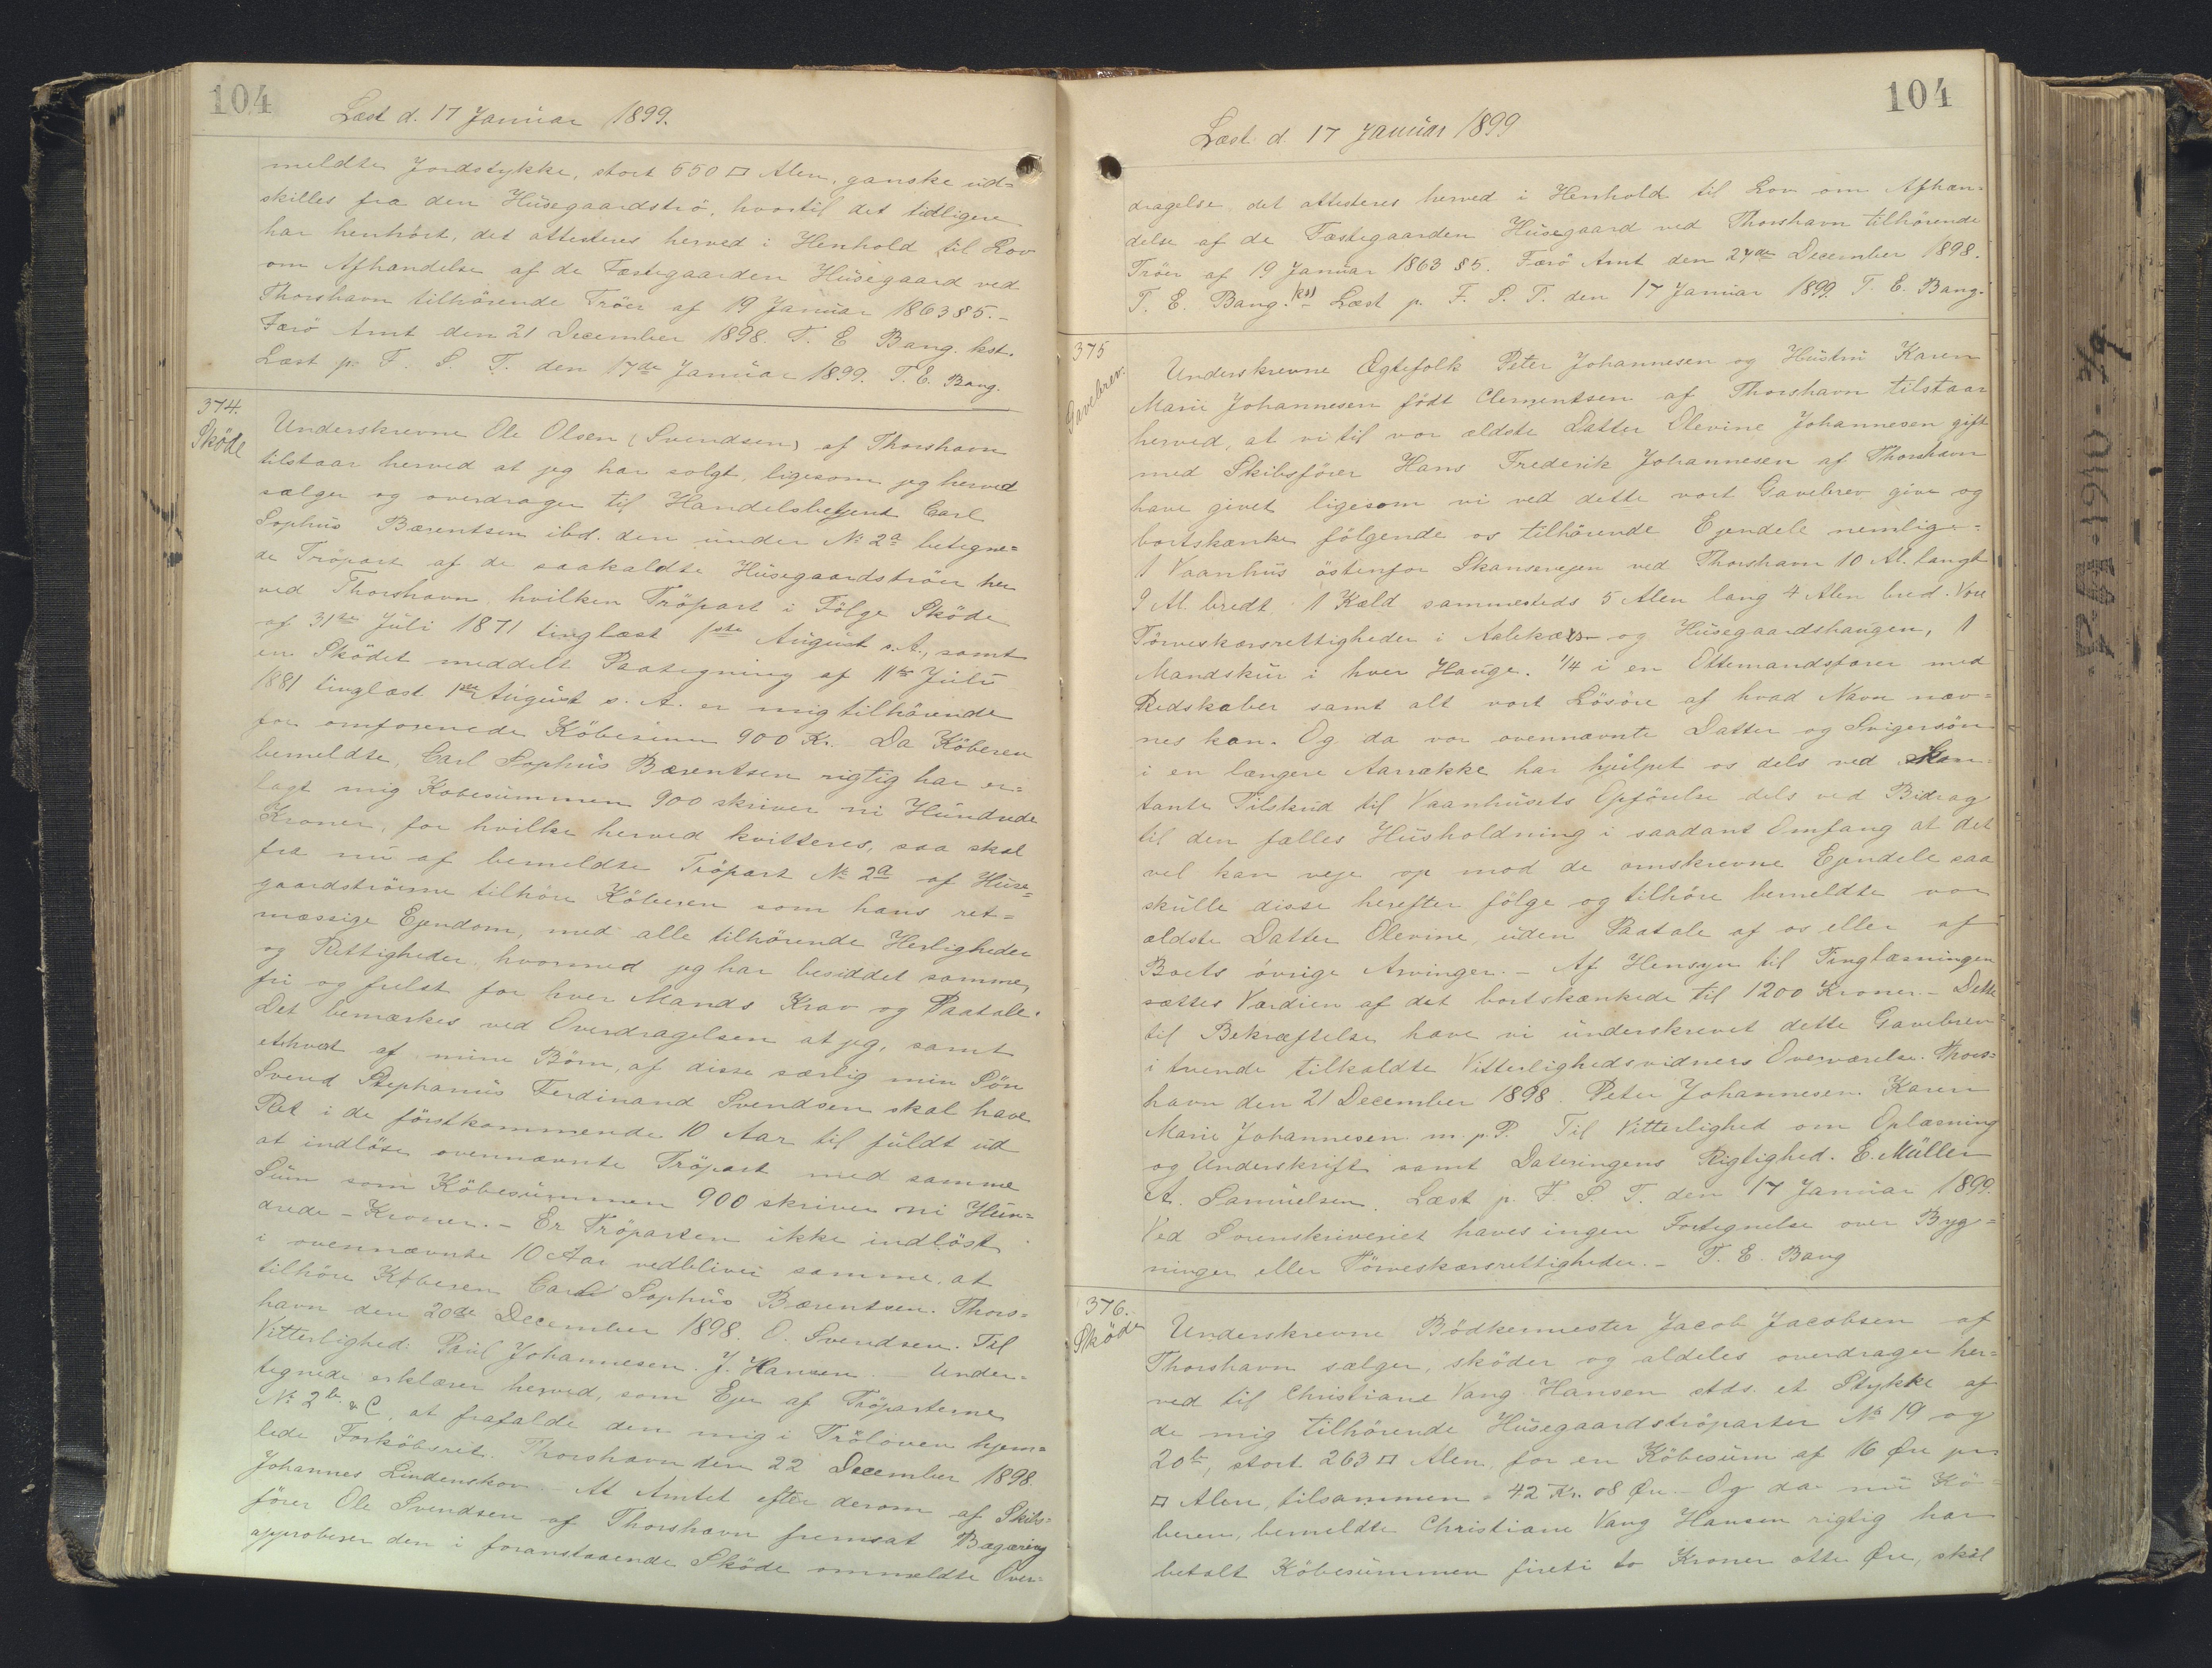 104
Læst d. 17 Januar 1899.
meldte Jordstykke, stort 550 □ Alen, ganske ud=
skilles fra den Husegaardströ, hvortil det tidligere
har henhört, det attesteres herved i Henhold til Lov
om Afhændelse af de Fæstegaarden Husegaard ved
Thorshavn tilhörende Tröer af 19 Januar 1863 § 5.-
Færö Amt den 21 December 1898. T. E Bang. kst.
Læst p. F. S. T. den 17de Januar 1899. T. E. Bang.
374.
Sköde
Underskrevne Ole Olsen (Svendsen) af Thorshavn
tilstaar herved at jeg har solgt, ligesom jeg herved
sælger og overdrager til Handelsbetjent Carl
Sophus Bærentsen ibd. den under No 2a betegne=
de Tröpart af de saakaldte Husegaardströer her
ved Thorshavn, hvilken Tröpart i Fölge Sköde
af 31te Juli 1871 tinglæst 1ste August s. A., samt
en Sködet meddelt Paategning af 11te Juli
1881 tinglæst 1ste August s. A. er mig tilhörende
for omforenede Köbesum 900 Kr. Da Köberen
bemeldte, Carl Sophus Bærentsen rigtig har er=
lagt mig Köbesummen 900 skriver ni Hundrede
Kroner, for hvilke herved kvitteres, saa skal
fra nu af bemeldte Tröpart No 2a af Huse=
gaardströerne tilhöre Köberen som hans ret=
mæssige Ejendom, med alle tilhörende Herligheder
og Rettigheder, hvormed jeg har besiddet samme,
fri og frelst for hver Mands Krav og Paatale.
Det bemærkes ved Overdragelsen at jeg, samt
ethvert af mine Börn, af disse særlig min Sön
Svend Stephanus Ferdinand Svendsen skal have
Ret i de förstkommende 10 Aar til fuldt ud
at indlöse ovennævnte Tröpart med samme
Sum som Köbesummen 900 skriver ni Hun=
drede - Kroner. - Er Tröparten ikke indlöst
i ovennævnte 10 Aar vedbliver samme, at
tilhöre Köberen Carl Sophus Bærentsen. Thors=
havn den 20de December 1898. O. Svendsen. Til
Vitterlighed: Paul Johannesen. J. Hansen. - Under=
tegnede erklærer herved, som Ejer af Tröparterne
No 2b & C, at frafalde den mig i Tröloven hjem=
lede Forköbsret. Thorshavn den 22 December 1898
Johannes Lindenskov. - At Amtet efter derom af Skibs=
förer Ole Svendsen af Thorshavn fremsat Begæring
approberer den i foranstaaende Sköde ommeldte Over=
104
Læst d. 17 Januar 1899
dragelse, det attesteres herved i Henhold til Lov om Afhæn=
delse af de Fæstegaarden Husegaard ved Thorshavn tilhörende
Tröer af 19 Januar 1863 § 5. Færö Amt den 24de December 1898.
T. E. Bang. kst Læst p. F. S. T. den 17 Januar 1899. T. E. Bang.
375
Gavebrev.
Underskrevne Ægtefolk Peter Johannesen og Hustru Karen
Marie Johannesen födt Clementsen af Thorshavn tilstaar
herved, at vi til vor ældste Datter Olevine Johannesen gift
med Skibsförer Hans Frederik Johannesen af Thorshavn
have givet ligesom vi ved dette vort Gavebrev give og
bortskænke fölgende os tilhörende Ejendele nemlige:
1 Vaanhus östenfor Skansevejen ved Thorshavn 10 Al. langt
9 Al. bredt 1 Kæld sammesteds 5 Alen lang 4 Alen bred. Vore
Törveskærsrettigheder i Aalekær og Husegaardshaugen, 1
Mandskur i hver Hauge. 1/4 i en Ottemandsfarer med
Redskaber samt alt vort Lösöre af hvad Navn næv=
nes kan. Og da vor ovennævnte Datter og Svigersön
i en længere Aarrække har hjulpet os dels ved kon=
tante Tilskud til Vaanhusets Opförelse dels ved Bidrag
til den fælles Husholdning i saadant Omfang at det
vel kan veje op mod de omskrevne Ejendele saa
skulle disse herefter fölge og tilhöre bemeldte vor
ældste Datter Olevine, uden Paatale af os eller af
Boets övrige Arvinger. - Af Hensyn til Tinglæsningen
sættes Værdien af det bortskænkede til 1200 Kroner. - Dette
til Bekræftelse have vi underskrevet dette Gavebrev
i tvende tilkaldte Vitterlighedsvidners Overværelse. Thors=
havn den 21 December 1898. Peter Johannesen. Karen
Marie Johannesen m. p. P. Til Vitterlighed om Oplæsning
og Underskrift samt Dateringens Rigtighed. E. Müller
A. Samuelsen. Læst p. F. S. T. den 17 Januar 1899.
Ved Sorenskriveriet haves ingen Fortegnelse over Byg=
ninger eller Törveskærsrettigheder. - T. E. Bang
376.
Sköde
Underskrevne Bödkermester Jacob Jacobsen af
Thorshavn sælger, sköder og aldeles overdrager her=
ved til Christiane Vang Hansen stds. et Stykke af
de mig tilhörende Husegaardströparter No 19 og
20b, stort 263 □ Alen, for en Köbesum af 16 Øre pr.
□ Alen, tilsammen 42 Kr. 08 Øre. - Og da nu Kö=
beren, bemeldte Christiane Vang Hansen rigtig har
betalt Köbesummen fireti to Kroner otte Øre, skal